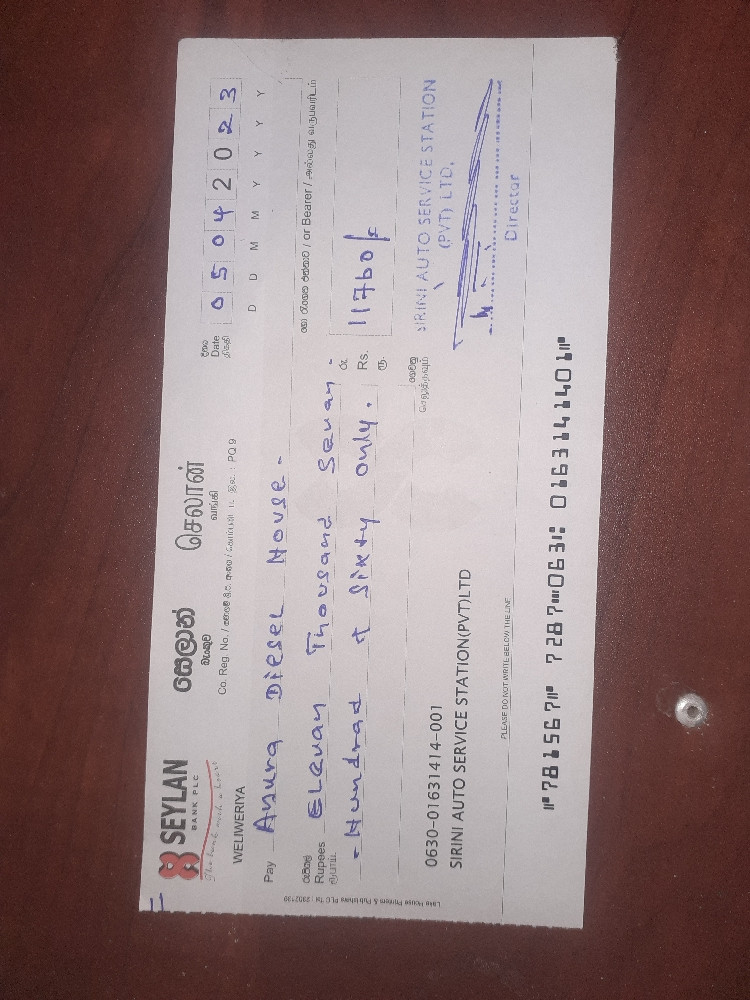 SEYLAN
BANK PLC
The bank with a heart
සෙලාන් බැංකුව
செலான் வங்கி
Co. Reg. No. / PQ 9
WELIWERIYA
දිනය
Date
திகதி
0 5 0 4 2 0 2 3
D D M M Y Y Y Y
Pay Anura Diesel House -
or Bearer / அல்லது
රුපියල්
Rupees
ரூபாய்
Eleven Thousand Sevan -
- Hundrad & Sixty only.
රු.
Rs.
ரூ.
11760/-
0630-01631414-001
SIRINI AUTO SERVICE STATION(PVT)LTD
SIRINI AUTO SERVICE STATION
(PVT) LTD.
Director
PLEASE DO NOT WRITE BELOW THE LINE
⑈781567⑈ 7287⑉063⑆ 0163141401⑈
Lake House Printers & Publishers PLC Tel : 2302130